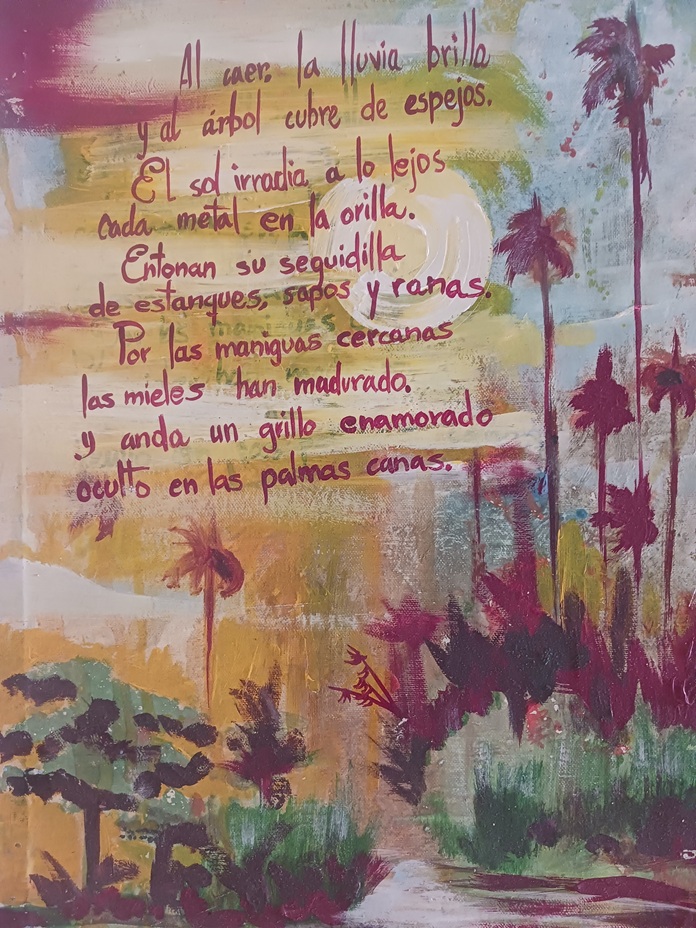 Al caer. la lluvia brilla
y al árbol cubre de espejos.
El sol irradia a lo lejos
cada metal en la orilla.
Entonan su seguidilla
de estanques, sapos y ranas.
Por las maniguas cercanas
las mieles han madurado.
y anda un grillo enamorado
oculto en las palmas canas.